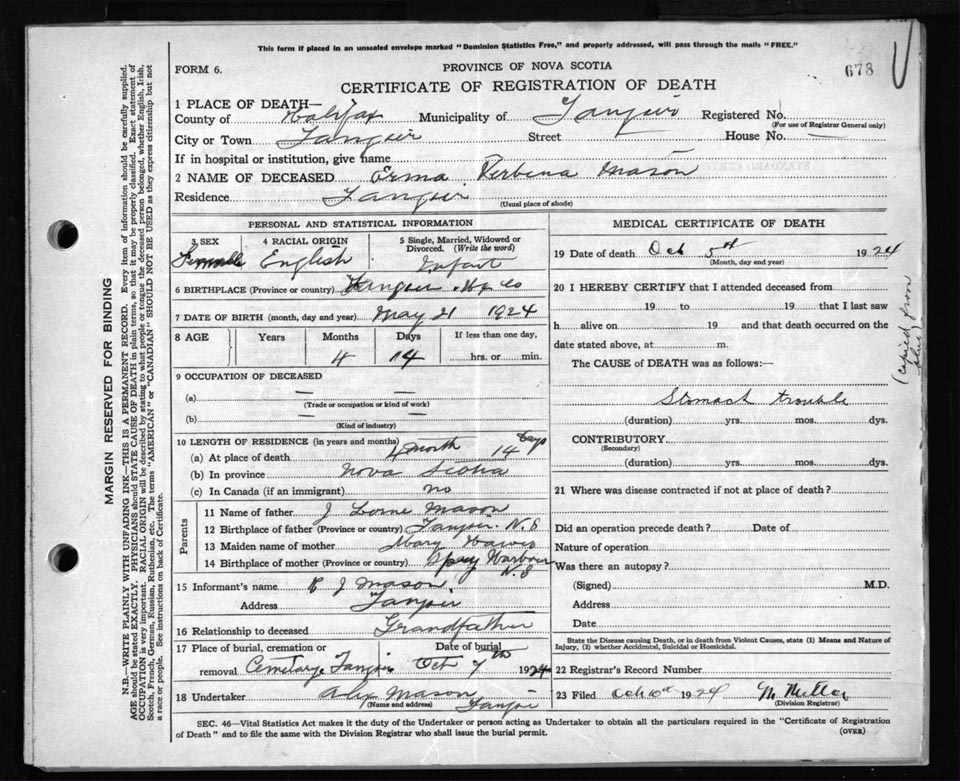 This form if placed in an unsealed envelope marked "Dominion Statistics Free," and properly addressed, will pass through the mails "FREE."
FORM 6.
PROVINCE OF NOVA SCOTIA
678
CERTIFICATE OF REGISTRATION OF DEATH
1 PLACE OF DEATH—
County of Halifax Municipality of Tangier Registered No.
(For use of Registrar General only)
City or Town Tangier Street House No. —
If in hospital or institution, give name —
2 NAME OF DECEASED Erma Verbena Mason
Residence Tangier
(Usual place of abode)
PERSONAL AND STATISTICAL INFORMATION
3 SEX 4 RACIAL ORIGIN 5 Single, Married, Widowed or Divorced. (Write the word)
Female English Infant
6 BIRTHPLACE (Province or country) Tangier Hfx Co
7 DATE OF BIRTH (month, day and year) May 21 1924
8 AGE Years Months Days If less than one day,
4 14 hrs. or min.
9 OCCUPATION OF DECEASED
(a) —
(Trade or occupation or kind of work)
(b) —
(Kind of industry)
10 LENGTH OF RESIDENCE (in years and months)
(a) At place of death 4 month 14 days
(b) In province Nova Scotia
(c) In Canada (if an immigrant) no
Parents
11 Name of father J Lorne Mason
12 Birthplace of father (Province or country) Tangier N.S
13 Maiden name of mother Mary Hawes
14 Birthplace of mother (Province or country) Spry Harbour N.S
15 Informant's name R J Mason
Address Tangier
16 Relationship to deceased Grandfather
17 Place of burial, cremation or removal Cemetary Tangier
Date of burial Oct 7th 1924
18 Undertaker Alex Mason Tangier
(Name and address)
MEDICAL CERTIFICATE OF DEATH
19 Date of death Oct 5th 1924
(Month, day and year)
20 I HEREBY CERTIFY that I attended deceased from
19 to 19 that I last saw
h alive on 19 and that death occurred on the
date stated above, at m.
The CAUSE of DEATH was as follows:
Stomach trouble
(duration) yrs. mos. dys.
CONTRIBUTORY
(Secondary)
(duration) yrs. mos. dys.
21 Where was disease contracted if not at place of death?
Did an operation precede death? Date of
Nature of operation
Was there an autopsy?
(Signed) M.D.
Address
Date
State the Disease causing Death, or in death from Violent Causes, state (1) Means and Nature of
Injury, (2) whether Accidental, Suicidal or Homicidal.
22 Registrar's Record Number
23 Filed Oct 6th 1924 M Miller
(Division Registrar)
SEC. 46—Vital Statistics Act makes it the duty of the Undertaker or person acting as Undertaker to obtain all the particulars required in the "Certificate of Registration
of Death" and to file the same with the Division Registrar who shall issue the burial permit.
(OVER)
MARGIN RESERVED FOR BINDING
N.B.—WRITE PLAINLY WITH UNFADING INK—THIS IS A PERMANENT RECORD. Every item of information should be carefully supplied.
AGE should be stated EXACTLY. PHYSICIANS should STATE CAUSE OF DEATH in plain terms, so that it may be properly classified. Exact statement of
OCCUPATION is very important. RACIAL ORIGIN will be described by stating to what people or tongue the deceased person belonged, whether English, Irish,
Scotch, French, German, Russian, Ruthenian, etc. The terms "AMERICAN" or "CANADIAN" SHOULD NOT BE USED as they express citizenship but not
a race or people. See instructions on back of Certificate.
(Copied from